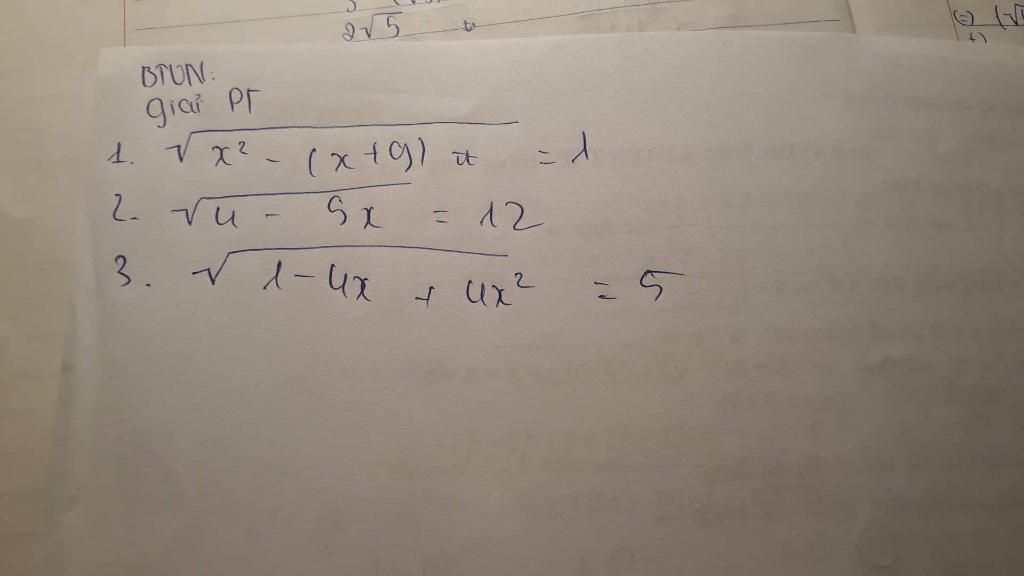 2√5
BTVN:
Giải PT
1. √x² - (x+9) = 1
2. √4 - 5x = 12
3. √1-4x + 4x² = 5